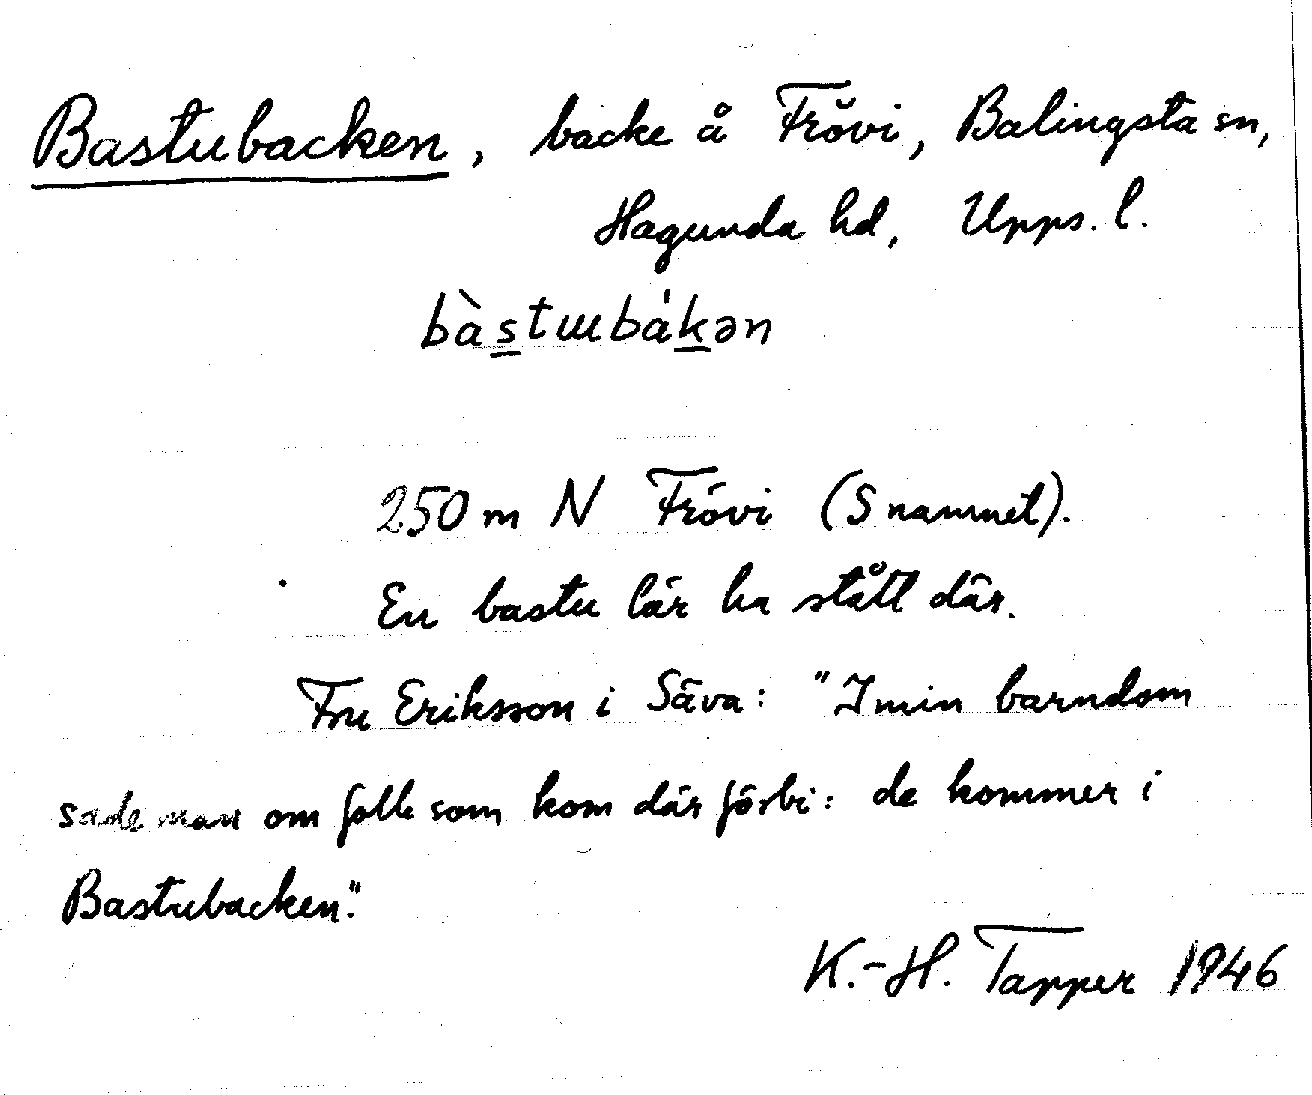 Bastubacken, backe å Frövi, Balingsta sn,
Hagunda hd, Upps. l.
bàs̲tɯbák̲ən
250 m N Frövi (S namnet).
En bastu lär ha stått där.
Fru Eriksson i Säva: "I min barndom
sade man om folk som kom där förbi: de kommer i
Bastubacken."
K.-H. Tapper 1946